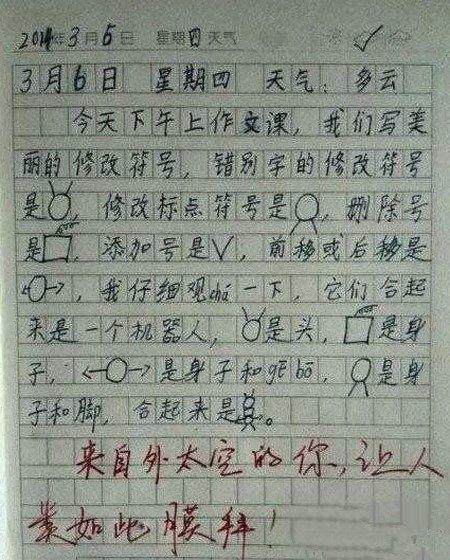 2014年3月6日 星期四天气
3月6日 星期四 天气：多云
今天下午上作文课，我们写美
丽的修改符号，错别字的修改符号
是 修改标点符号是 ，删除号
是 ，添加号是∨，前移或后移是
，我仔细观chá一下，它们合起
来是一个机器人， 是头， 是身
子， 是身子和gēbō， 是身
子和脚，合起来是 。
来自外太空的你，让人
类如此膜拜！